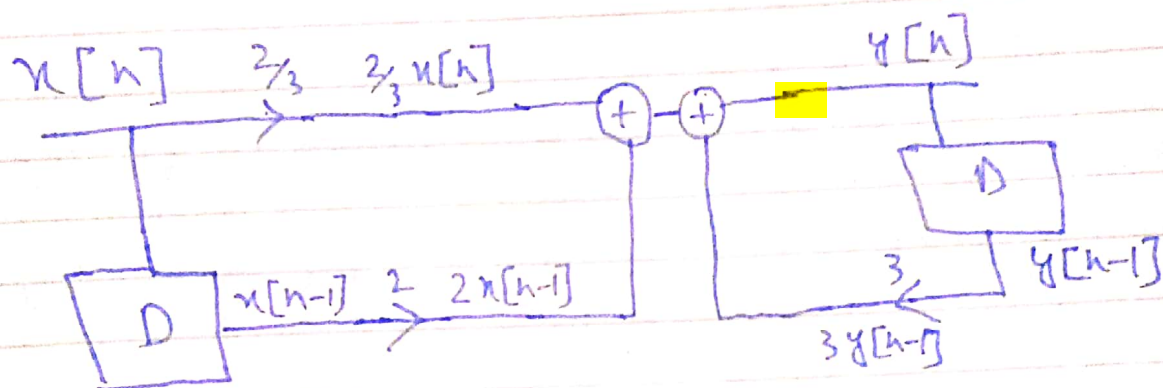 x[n] 2/3 2/3 x[n] + + y[n]
D
D x[n-1] 2 2x[n-1] 3 y[n-1]
3y[n-1]